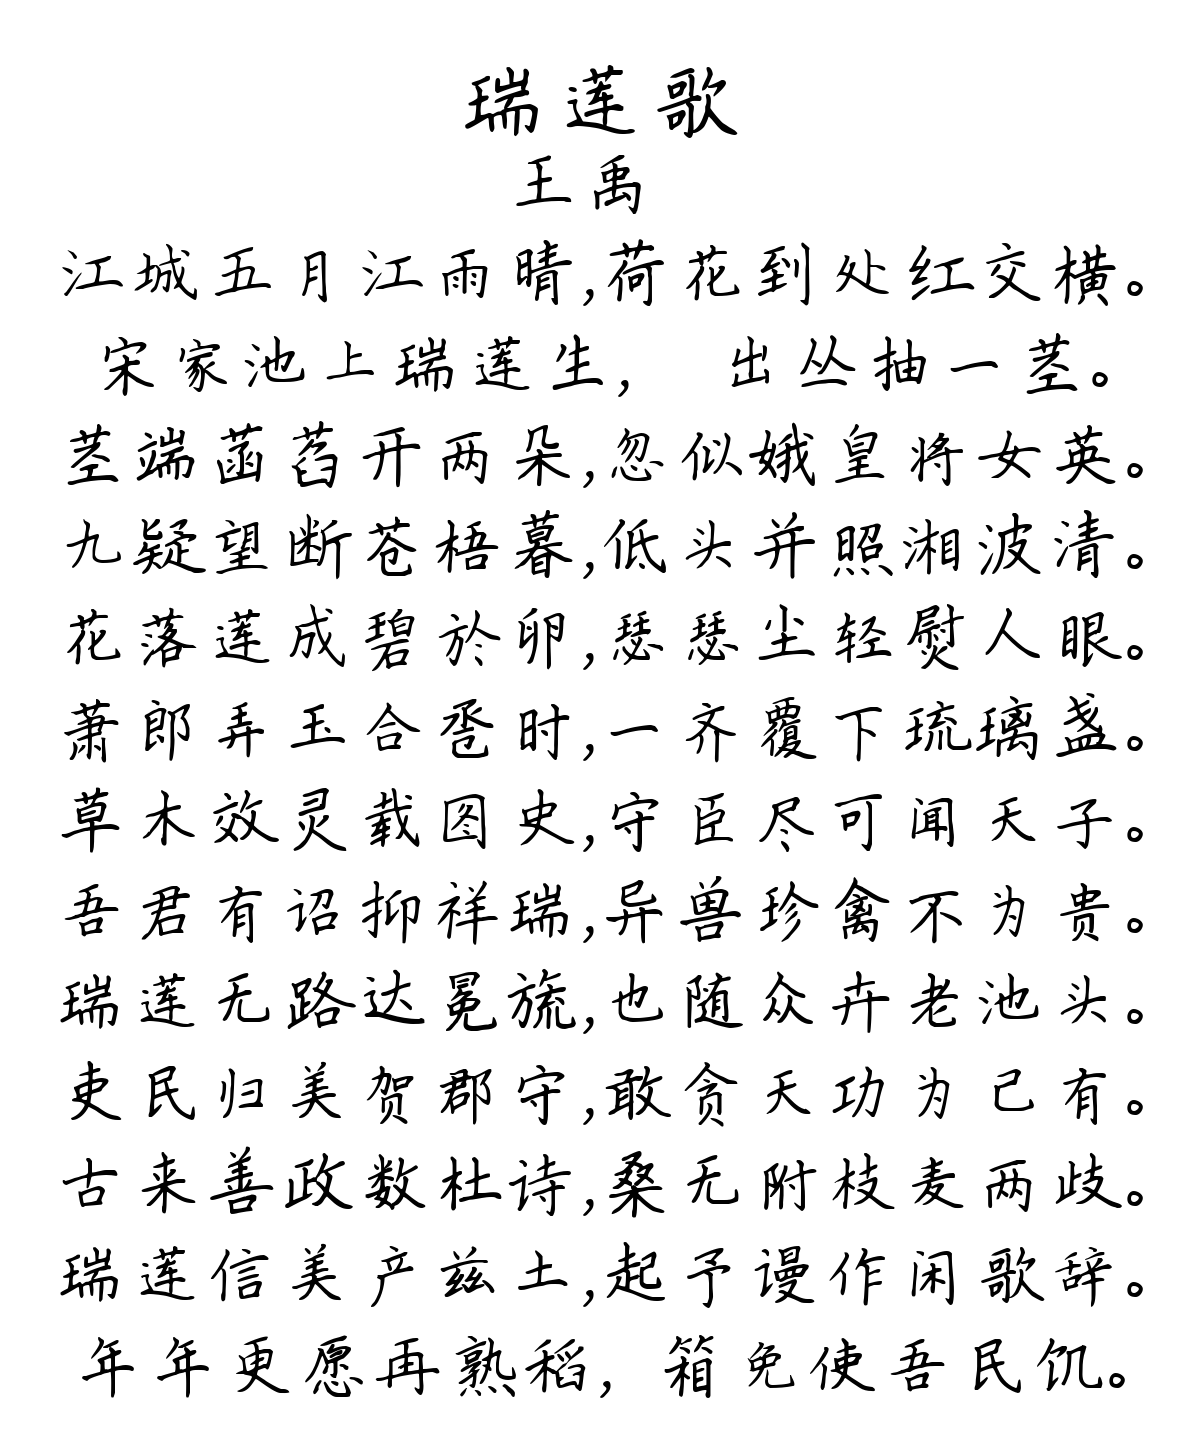 瑞莲歌
王禹
江城五月江雨晴,荷花到处红交横。
宋家池上瑞莲生, 出丛抽一茎。
茎端菡萏开两朵,忽似娥皇将女英。
九疑望断苍梧暮,低头并照湘波清。
花落莲成碧於卵,瑟瑟尘轻熨人眼。
萧郎弄玉合卺时,一齐覆下琉璃盏。
草木效灵载图史,守臣尽可闻天子。
吾君有诏抑祥瑞,异兽珍禽不为贵。
瑞莲无路达冕旒,也随众卉老池头。
吏民归美贺郡守,敢贪天功为己有。
古来善政数杜诗,桑无附枝麦两歧。
瑞莲信美产兹土,起予谩作闲歌辞。
年年更愿再熟稻, 箱免使吾民饥。